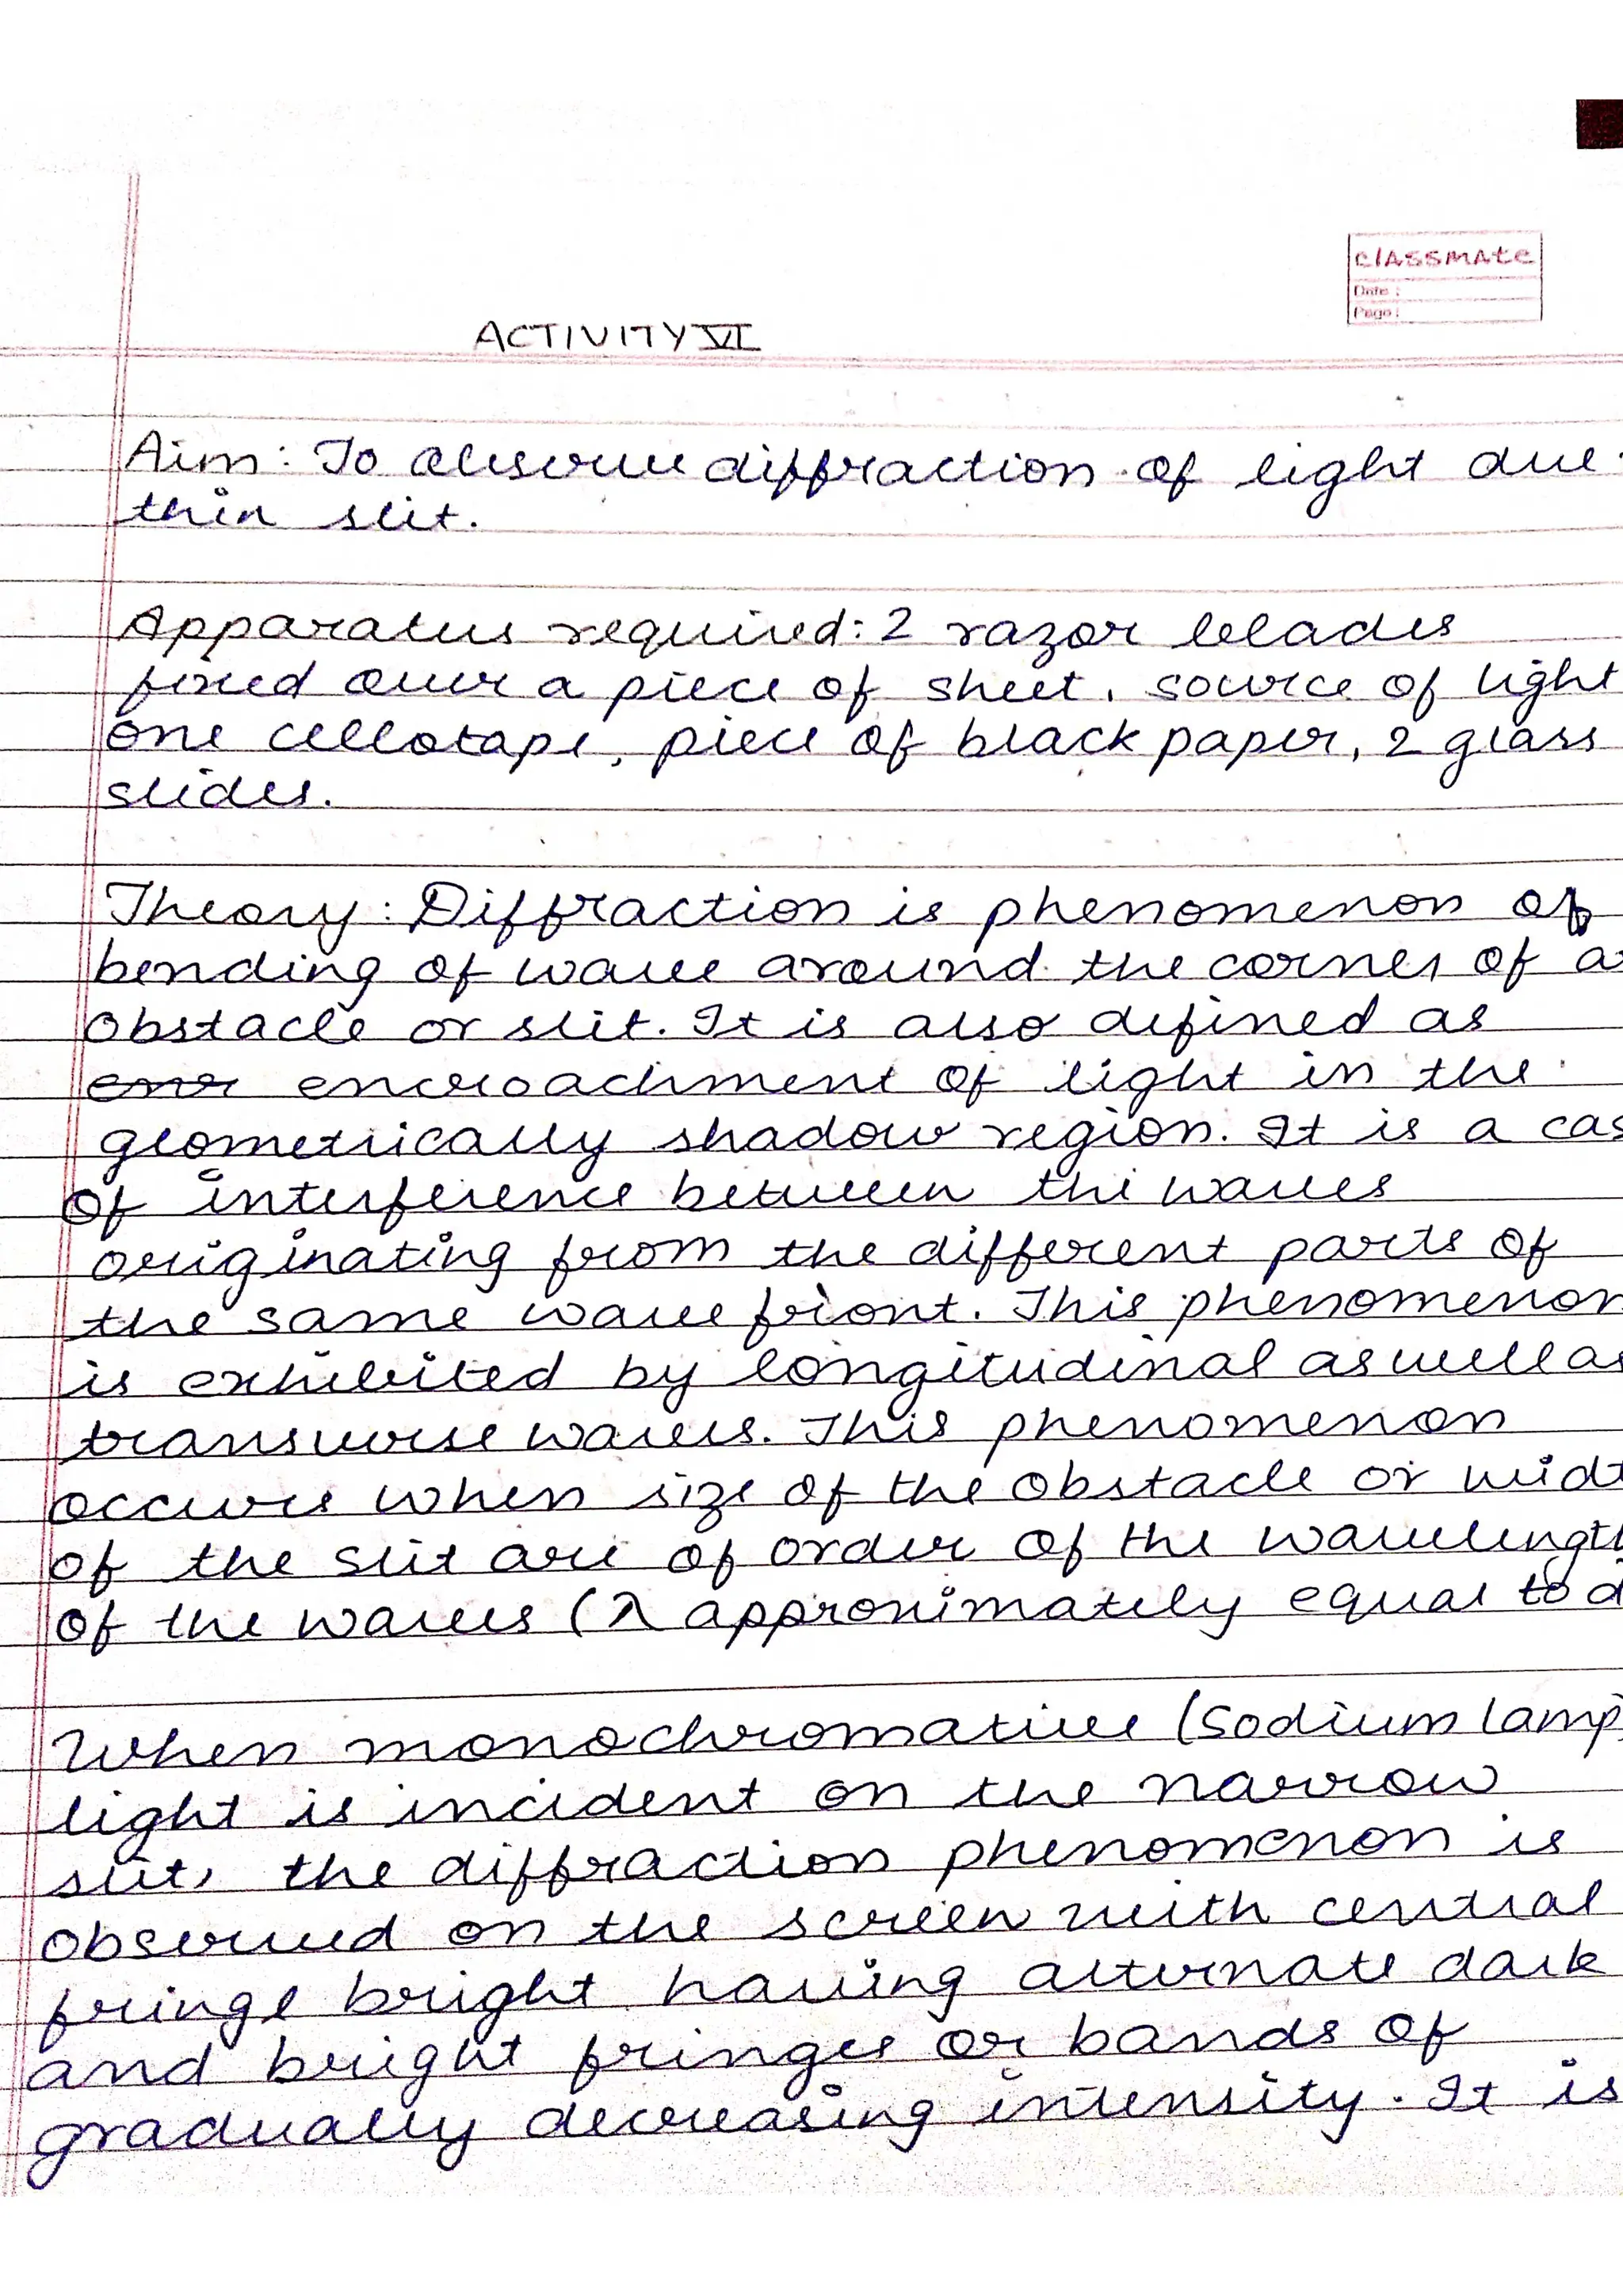 classmate
Date :
Page :
ACTIVITY VI
Aim: To observe diffraction of light due
thin slit.
Apparatus required: 2 razor blades
fixed over a piece of sheet, source of light
one cellotape, piece of black paper, 2 glass
slides.
Theory: Diffraction is phenomenon of
bending of wave around the corner of a
obstacle or slit. It is also defined as
encroachment of light in the
geometrically shadow region. It is a cas
of interference between the waves
originating from the different parts of
the same wave front. This phenomenon
is exhibited by longitudinal as well as
transverse waves. This phenomenon
occurs when size of the obstacle or widt
of the slit are of order of the wavelength
of the waves (λ approximately equal to d
When monochromative (sodium lamp)
light is incident on the narrow
slit, the diffraction phenomenon is
observed on the screen with central
fringe bright having alternate dark
and bright fringes or bands of
gradually decreasing intensity. It is